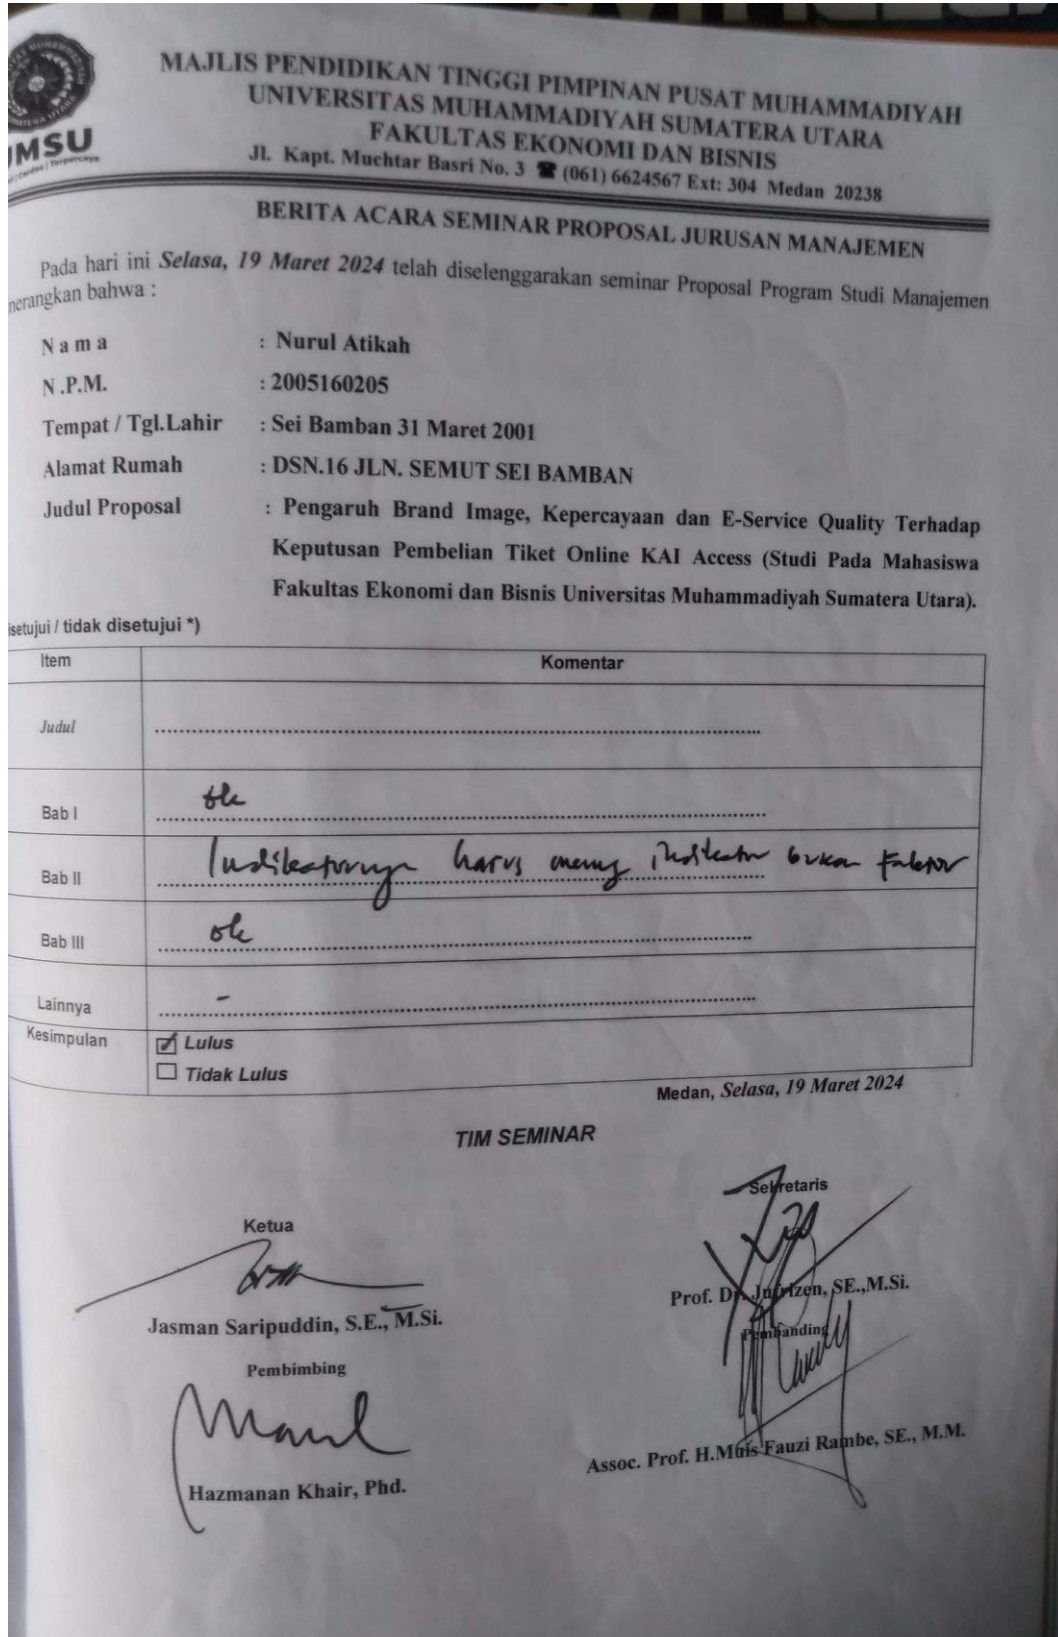 MAJLIS PENDIDIKAN TINGGI PIMPINAN PUSAT MUHAMMADIYAH
UNIVERSITAS MUHAMMADIYAH SUMATERA UTARA
FAKULTAS EKONOMI DAN BISNIS
Jl. Kapt. Muchtar Basri No. 3 ☎ (061) 6624567 Ext: 304 Medan 20238
MSU
BERITA ACARA SEMINAR PROPOSAL JURUSAN MANAJEMEN
Pada hari ini Selasa, 19 Maret 2024 telah diselenggarakan seminar Proposal Program Studi Manajemen
nerangkan bahwa :
N a m a : Nurul Atikah
N .P.M. : 2005160205
Tempat / Tgl.Lahir : Sei Bamban 31 Maret 2001
Alamat Rumah : DSN.16 JLN. SEMUT SEI BAMBAN
Judul Proposal : Pengaruh Brand Image, Kepercayaan dan E-Service Quality Terhadap
Keputusan Pembelian Tiket Online KAI Access (Studi Pada Mahasiswa
Fakultas Ekonomi dan Bisnis Universitas Muhammadiyah Sumatera Utara).
isetujui / tidak disetujui *)
Item Komentar
Judul
Bab I ok
Bab II Indikatornya harus indikator bukan faktor
Bab III ok
Lainnya -
Kesimpulan ☑ Lulus
☐ Tidak Lulus
Medan, Selasa, 19 Maret 2024
TIM SEMINAR
Ketua Sekretaris
Jasman Saripuddin, S.E., M.Si. Prof. Dr. Jufrizen, SE.,M.Si.
Pembimbing Pembanding
Hazmanan Khair, Phd. Assoc. Prof. H.Muis Fauzi Rambe, SE., M.M.